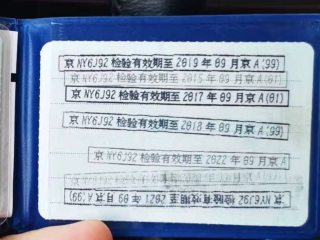 京NY6J92检验有效期至2019年09月京A(99)
京NY6J92检验有效期至2015年09月京A(01)
京NY6J92检验有效期至2017年09月京A(01)
京NY6J92检验有效期至2018年09月京A(99)
京NY6J92检验有效期至2022年09月京A
京NY6J92检验有效期至2021年09月京A(99)